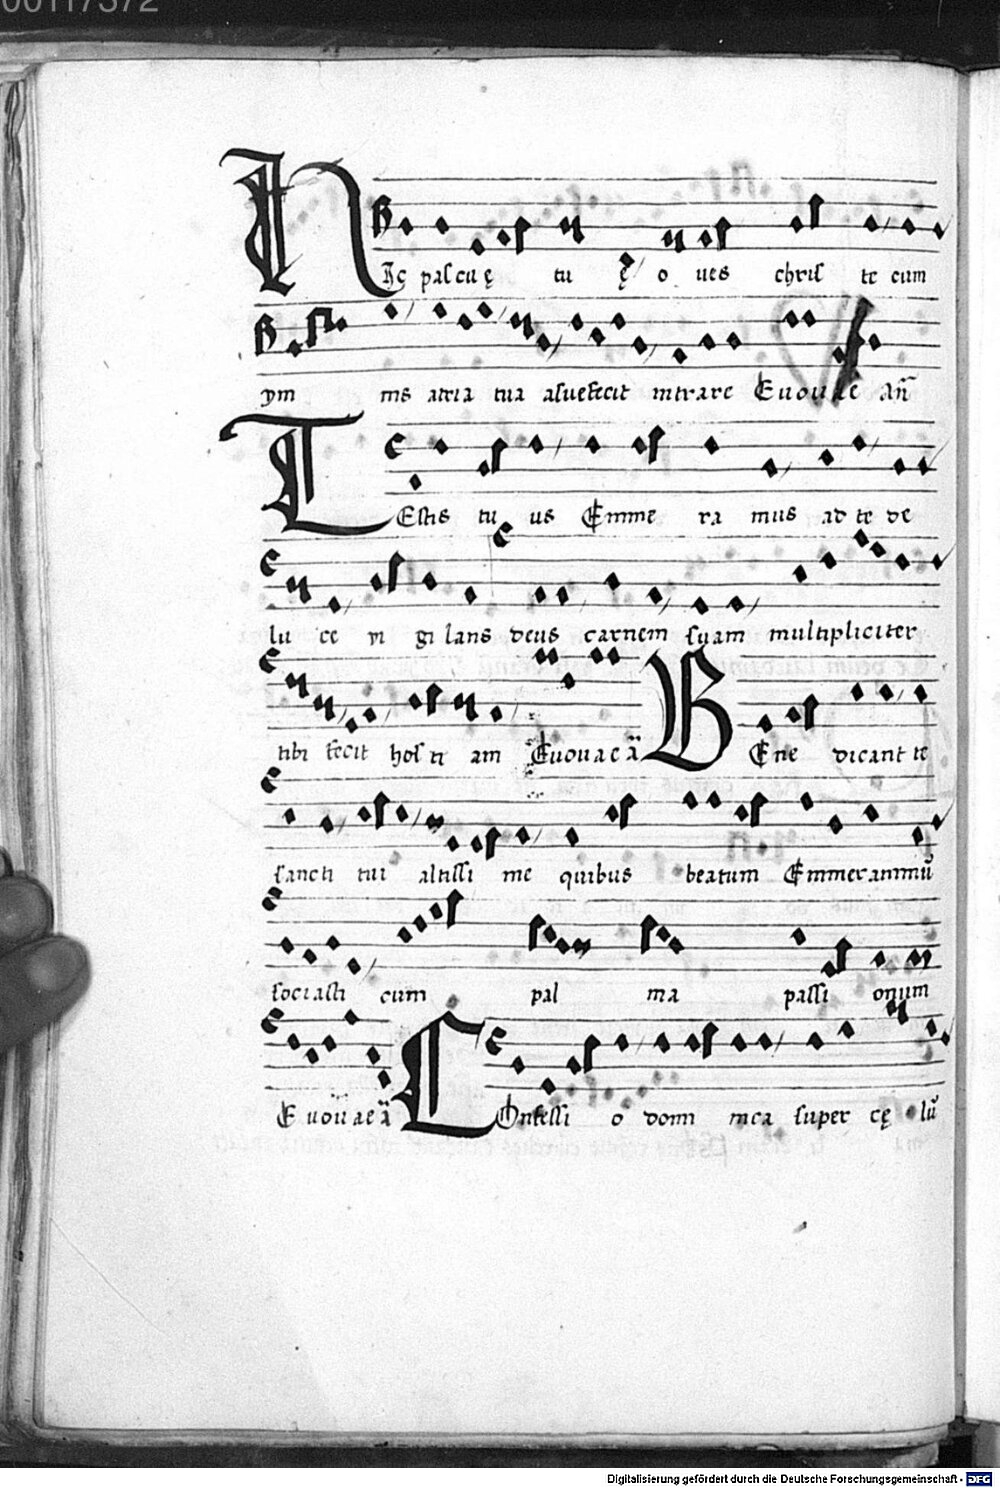 00117372
Hęc pascuę tu ę oves christe cum
ym nis atria tua assuefecit intrare Evovae Añ
TEstis tu us Emme ra mus ad te de
lu ce vi gi lans deus carnem suam multipliciter
tibi fecit hosti am Evovae ā BEne dicant te
sancti tui altissi me quibus beatum Emmerammū
sociasti cum pal ma passi onum
Evovae ā COnfessi o domi nica super cę lū
Digitalisierung gefördert durch die Deutsche Forschungsgemeinschaft - DFG